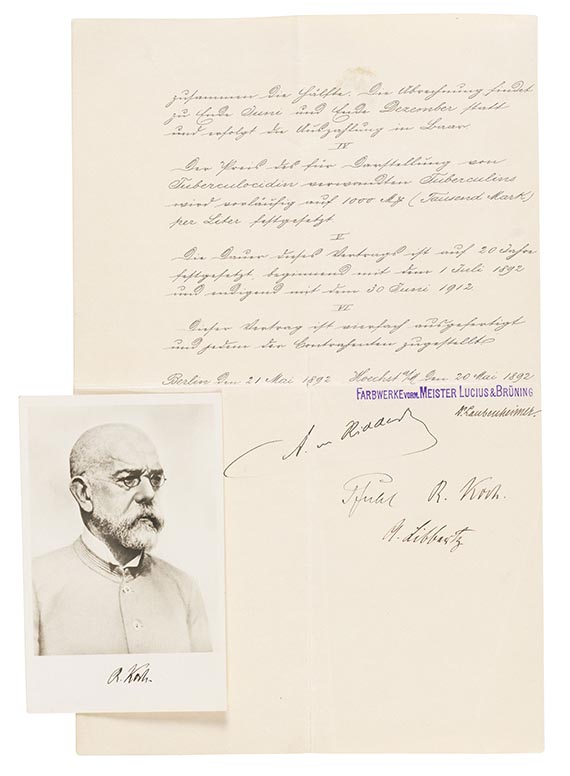 zusammen die Hälfte. Die Abrechnung findet
zu Ende Juni und Ende Dezember statt
und erfolgt die Auszahlung in Baar.
IV
Der Preis des für Darstellung von
Tuberculocidin verwandten Tuberculins
wird vorläufig auf 1000 M (Tausend Mark)
per Liter festgesetzt
V
Die Dauer dieses Vertrags ist auf 20 Jahre
festgesetzt, beginnend mit dem 1 Juli 1892
und endigend mit dem 30 Juni 1912
VI
Dieser Vertrag ist vierfach ausgefertigt
und jedem der Contrahenten zugestellt
Berlin den 21 Mai 1892 Hoechst a/M den 20 Mai 1892
FARBWERKE VORM. MEISTER LUCIUS & BRÜNING
Dr. Laubenheimer.
A. v. Ridder
Pfuhl R. Koch.
A. Libbertz
R. Koch.